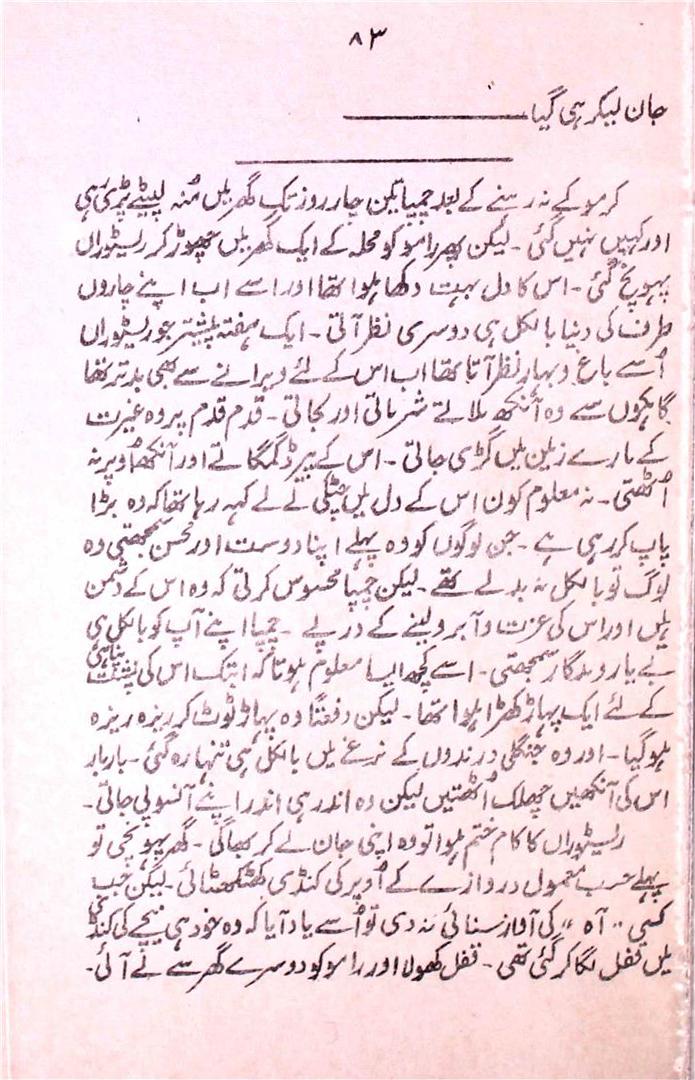 ۸۳
جان لیکر ہی گیا
کرمو کے نہ رہنے کے بعد چمپا تین چار روز تک گھر میں مُنہ لپیٹے پڑی رہی
اور کہیں نہیں گئی ۔ لیکن پھر رامو کو محلہ کے ایک گھر میں چھوڑ کر ریسٹوراں
پہونچ گئی ۔ اس کا دل بہت دکھا ہوا تھا اور اسے اب اپنے چاروں
طرف کی دنیا بالکل ہی دوسری نظر آتی ۔ ایک ہفتہ پیشتر جو ریسٹوراں
اُسے باغ و بہار نظر آتا تھا اب اس کے لئے ویرانے سے بھی بدتر تھا
گاہکوں سے وہ آنکھ ملاتے شرماتی اور لجاتی ۔ قدم قدم پر وہ غیرت
کے مارے زمین میں گڑی جاتی ۔ اس کے پیر ڈگمگاتے اور آنکھ اوپر نہ
اُٹھتی ۔ نہ معلوم کون اس کے دل میں چٹکی لے لے کہہ رہا تھا کہ وہ بڑا
پاپ کر رہی ہے ۔ جن لوگوں کو وہ پہلے اپنا دوست اور محسن سمجھتی وہ
لوگ تو بالکل نہ بدلے تھے ۔ لیکن چمپا محسوس کرتی کہ وہ اس کے دشمن
ہیں اور اس کی عزت و آبرو لینے کے درپے ۔ چمپا اپنے آپ کو بالکل ہی
بے یار و مددگار سمجھتی ۔ اسے کچھ ایسا معلوم ہوتا کہ ابتک اس کی پشت پناہی
کے لئے ایک پہاڑ کھڑا ہوا تھا ۔ لیکن دفعتًا وہ پہاڑ ٹوٹ کر ریزہ ریزہ
ہو گیا ۔ اور وہ جنگلی درندوں کے نرغے میں بالکل ہی تنہا رہ گئی ۔ بار بار
اس کی آنکھیں چھلک اُٹھتیں لیکن وہ اندر ہی اندر اپنے آنسو پی جاتی ۔
ریسٹوراں کا کام ختم ہوا تو وہ اپنی جان لے کر بھاگی ۔ گھر پہونچی تو
پہلے حسب معمول دروازے کے اُوپر کی کنڈی کھٹکھٹائی ۔ لیکن جب
کسی ،، آہ ،، کی آواز سنائی نہ دی تو اُسے یاد آیا کہ وہ خود ہی نیچے کی کنڈی
میں قفل لگا کر گئی تھی ۔ قفل کھولا اور رامو کو دوسرے گھر سے لے آئی ۔